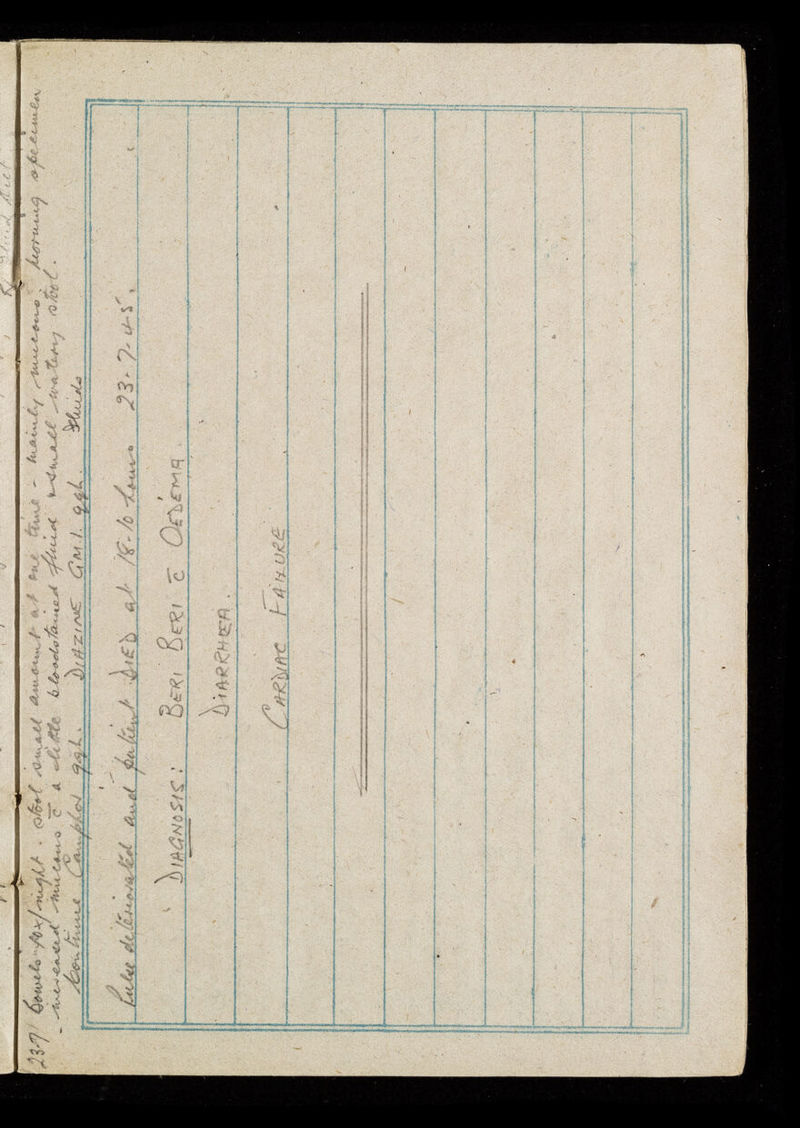 23.7 Bowels 10x/night. Stool small amount at one time - mainly mucous. Morning specimen
- increased mucous c̄ a little bloodstained fluid & small watery stool.
Continue Camphor qqh. DIAZINE GM.1. qqh. Fluids
Pulse deteriorated and patient DIED at 18.10 hours 23.7.45.
DIAGNOSIS: BERI BERI c̄ OEDEMA.
DIARRHŒA.
CARDIAC FAILURE